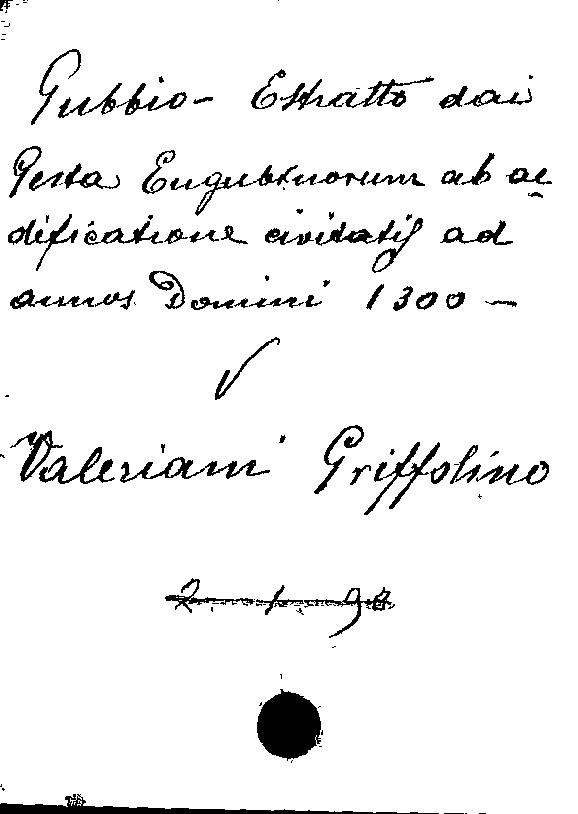 Gubbio - Estratto dai
Gesta Eugubinorum ab ae
dificatione civitatis ad
annos Domini 1300 -
Valeriani Griffolino
2. 1. 98